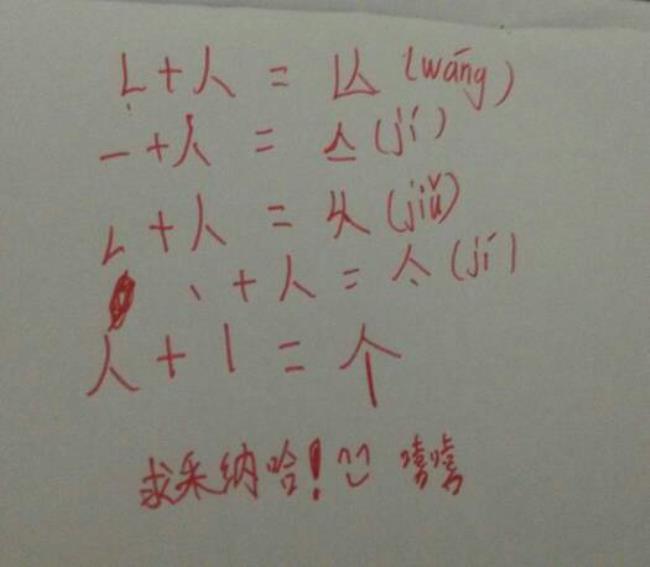 𠃊+人 = 亾 (wáng)
一+人 = 亼 (jí)
𠃊+人 = 乆 (jiǔ)
丶+人 = 亽 (jí)
人+丨= 个
求采纳哈!:) 嘻嘻